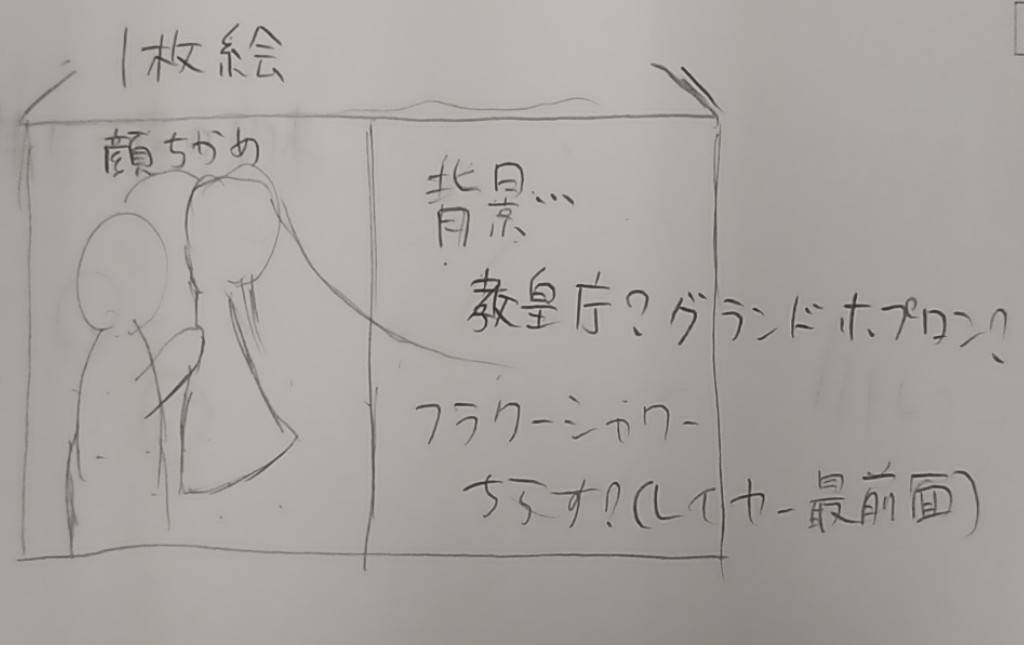 1枚絵
顔ちかめ
背景…
教皇庁?グランドホプロン?
フラワーシャワー
ちらす?(レイヤー最前面)